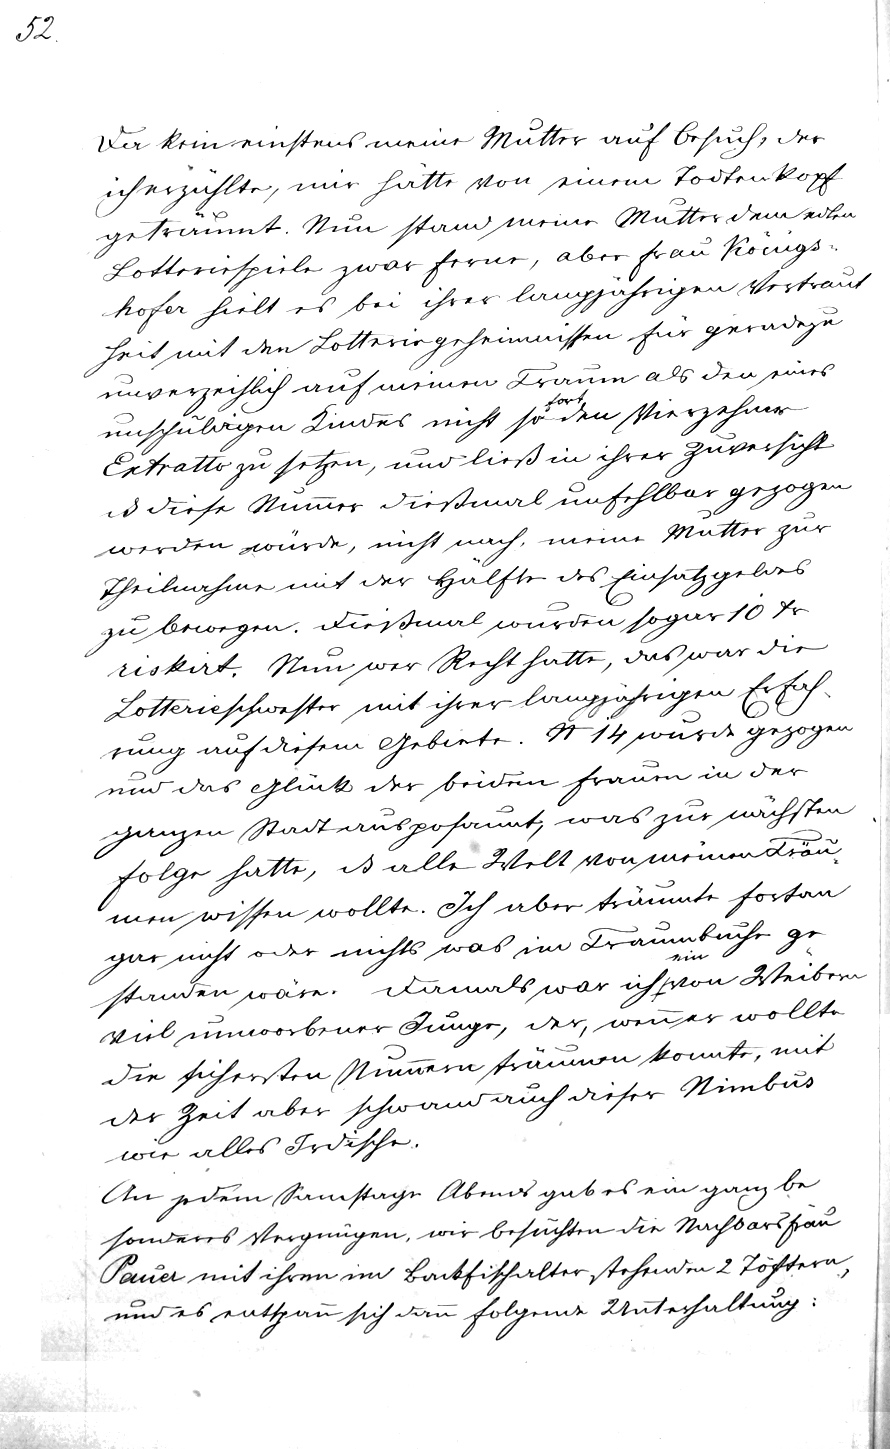 52.
Da kam einstens meine Mutter auf Besuch, der
ich erzählte, mir hätte von einem Todtenkopf
geträumt. Nun stand meine Mutter dem edlen
Lotteriespiele zwar ferne, aber Frau Königs-
hofer hielt es bei ihrer langjährigen Vertraut
heit mit den Lotteriegeheimnissen für geradezu
unverzeihlich auf meinen Traum als den eines
unschuldigen Kindes nicht sofort den Vierzehner
Extratto zu setzen, und ließ in ihrer Zuversicht
diese Num̅er dießmal unfehlbar gezogen
werden würde, nicht nach, meine Mutter zur
Theilnahme mit der Hälfte des Einsatzgeldes
zu bewegen. Dießmal wurden sogar 10 kr
riskirt. Nun wer Recht hatte, das war die
Lotterieschwester mit ihrer langjährigen Erfah-
rung auf diesem Gebiete. N 14 wurde gezogen
und das Glück der beiden Frauen in der
ganzen Stadt ausposaunt, was zur nächsten
Folge hatte, alle Welt von meinen Träu-
men wissen wollte. Ich aber träumte fortan
gar nicht oder nichts was im Traumbuche ge
standen wäre. Damals war ich ein von Weibern
viel umworbener Junge, der, wen̅ er wollte
die sichersten Num̅ern träumen konnte, mit
der Zeit aber schwand auch dieser Nimbus
wie alles Irdische.
An jedem Samstage Abends gab es ein ganz be
sonderes Vergnügen, wir besuchten die Nachbarsfrau
Pauer mit ihren im Backfischalter stehenden 2 Töchtern,
und es entspan̅ sich dan̅ folgende Unterhaltung: